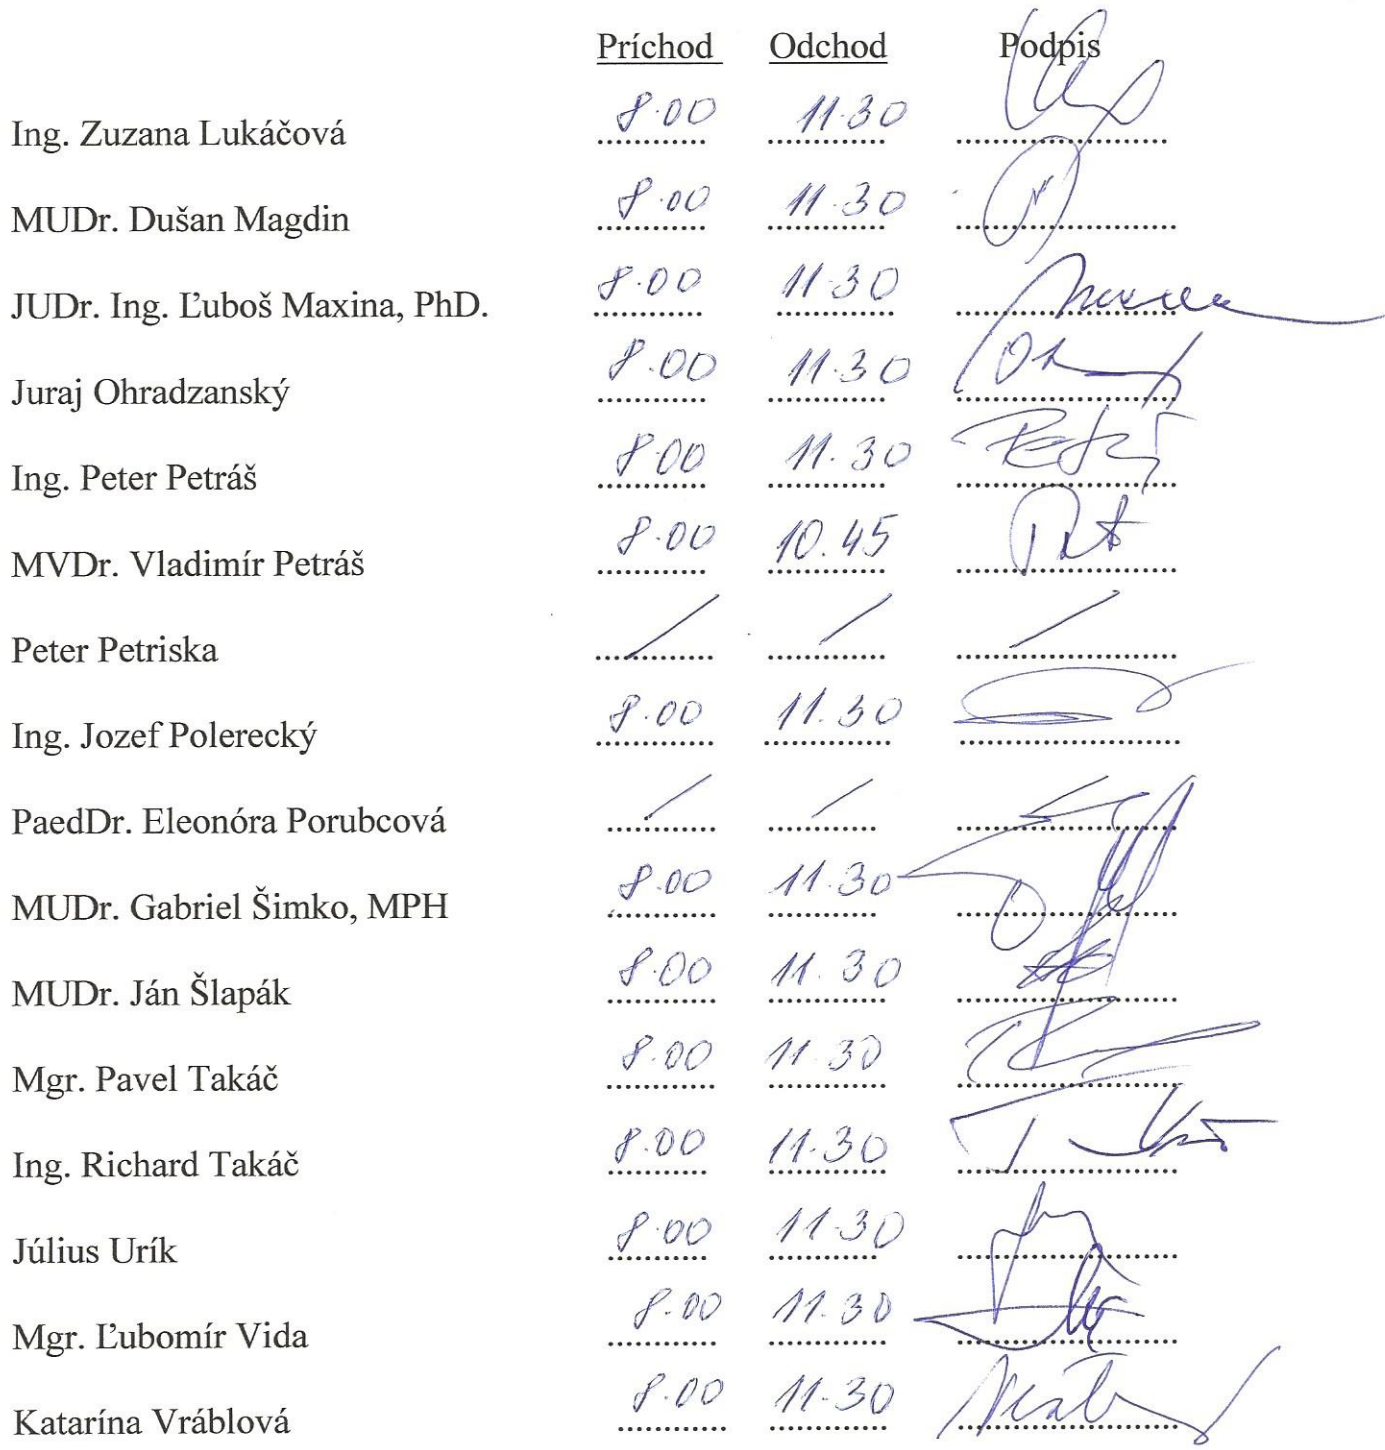 Príchod Odchod Podpis
Ing. Zuzana Lukáčová 8.00 11.30
MUDr. Dušan Magdin 8.00 11.30
JUDr. Ing. Ľuboš Maxina, PhD. 8.00 11.30
Juraj Ohradzanský 8.00 11.30
Ing. Peter Petráš 8.00 11.30
MVDr. Vladimír Petráš 8.00 10.45
Peter Petriska / / /
Ing. Jozef Polerecký 8.00 11.30
PaedDr. Eleonóra Porubcová / /
MUDr. Gabriel Šimko, MPH 8.00 11.30
MUDr. Ján Šlapák 8.00 11.30
Mgr. Pavel Takáč 8.00 11.30
Ing. Richard Takáč 8.00 11.30
Július Urík 8.00 11.30
Mgr. Ľubomír Vida 8.00 11.30
Katarína Vráblová 8.00 11.30